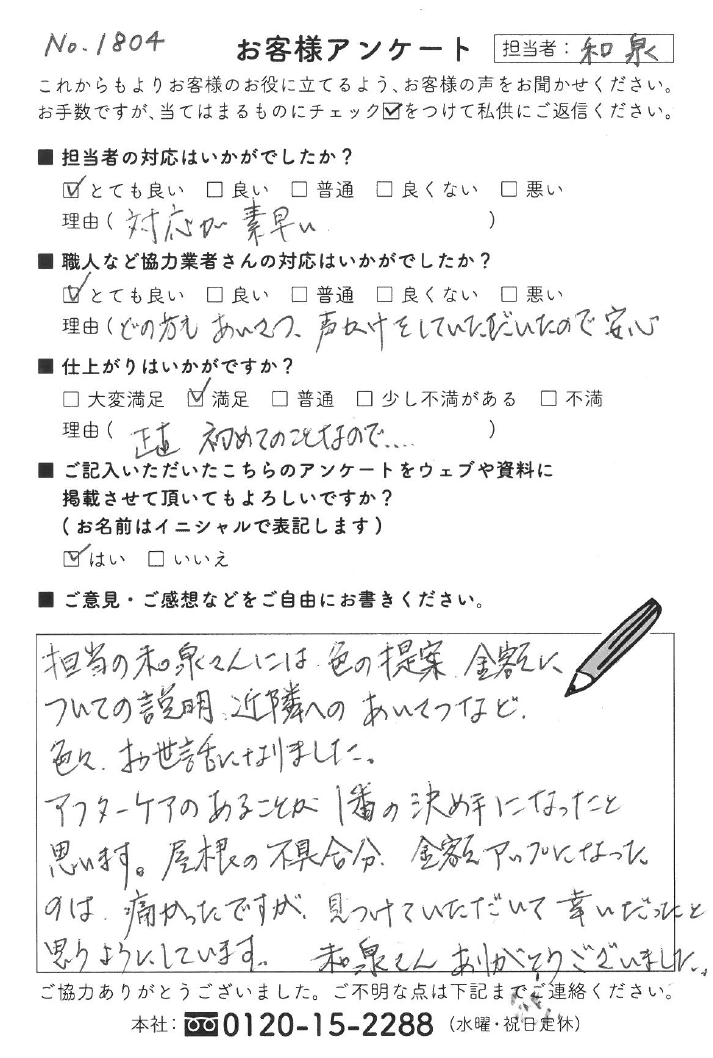 No.1804
お客様アンケート
担当者：和泉
これからもよりお客様のお役に立てるよう、お客様の声をお聞かせください。
お手数ですが、当てはまるものにチェック☑をつけて私供にご返信ください。
■ 担当者の対応はいかがでしたか？
☑とても良い □良い □普通 □良くない □悪い
理由（対応が素早い）
■ 職人など協力業者さんの対応はいかがでしたか？
☑とても良い □良い □普通 □良くない □悪い
理由（どの方も あいさつ、声かけをしていただいたので 安心
■ 仕上がりはいかがですか？
□ 大変満足 ☑ 満足 □ 普通 □ 少し不満がある □ 不満
理由（正直 初めてのことなので....）
■ ご記入いただいたこちらのアンケートをウェブや資料に
掲載させて頂いてもよろしいですか？
（お名前はイニシャルで表記します）
☑はい □いいえ
■ ご意見・ご感想などをご自由にお書きください。
担当の和泉さんには、色の提案、金額に
ついての説明、近隣への あいさつなど、
色々、お世話になりました。
アフターケアのあることが 1番の決め手になったと
思います。屋根の不具合分、金額アップになった
のは、痛かったですが、見つけていただいて 幸いだったと
思うようにしています。 和泉さん ありがとうございました。
ご協力ありがとうございました。ご不明な点は下記までご連絡ください。
本社：0120-15-2288（水曜・祝日定休）